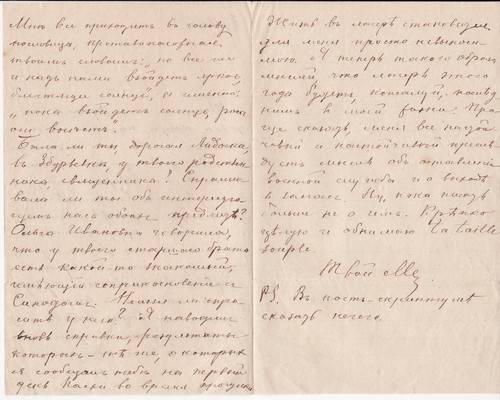 Мнѣ все приходитъ въ голову
пословица, противоположная
твоимъ словамъ: „но все же
и надъ нами взойдетъ яркое,
блестящее солнце", а именно:
„пока взойдетъ солнце, роса
очи выѣстъ".
Была ли ты, дорогая Лидочка,
въ Збурьевкѣ, у твоего родствен
ника, священника? Спраши
вала ли ты объ интересую
щемъ насъ обоихъ предметѣ?
Ольга Ивановна говорила,
что у твоего старшаго брата
есть какой-то знакомый,
имѣющій соприкосновеніе съ
Синодомъ. Нельзя ли спро
сить у него? Я наводилъ
вновь справки, результаты
которыхъ – тѣ же, о которыхъ
я сообщалъ тебѣ на первый
день Пасхи во время прогулки
Жить въ лагерѣ становится
для меня просто невыноси
мою. И теперь такого
мнѣнія, что лагерь этого
года будетъ, пожалуй, послѣд
нимъ въ моей жизни. Про
ще сказать, меня все
чивѣй и настойчивѣй преслѣ
дуетъ мысль объ оставленіи
военной службы и о выходѣ
въ запасъ. Ну, пока писать
больше не о чемъ. Крѣпко
цѣлую и обнимаю la taille
souple.
Твой
PS. Въ постъ-скриптумѣ
сказать нечего.